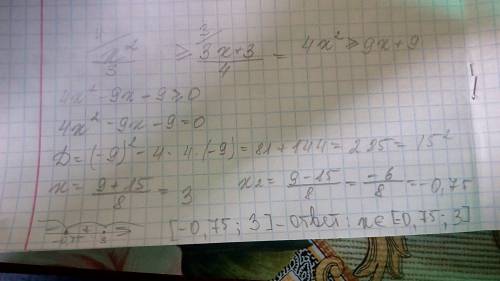 4 3
x²/3 ≥ 3x+3/4 = 4x² ≥ 9x+9
4x² - 9x - 9 ≥ 0
4x² - 9x - 9 = 0
D = (-9)² - 4 · 4 · (-9) = 81 + 144 = 225 = 15²
x = 9+15/8 = 3 x2 = 9-15/8 = -6/8 = -0,75
-0,75 3 [-0,75; 3] - ответ: x ∈ [-0,75; 3]